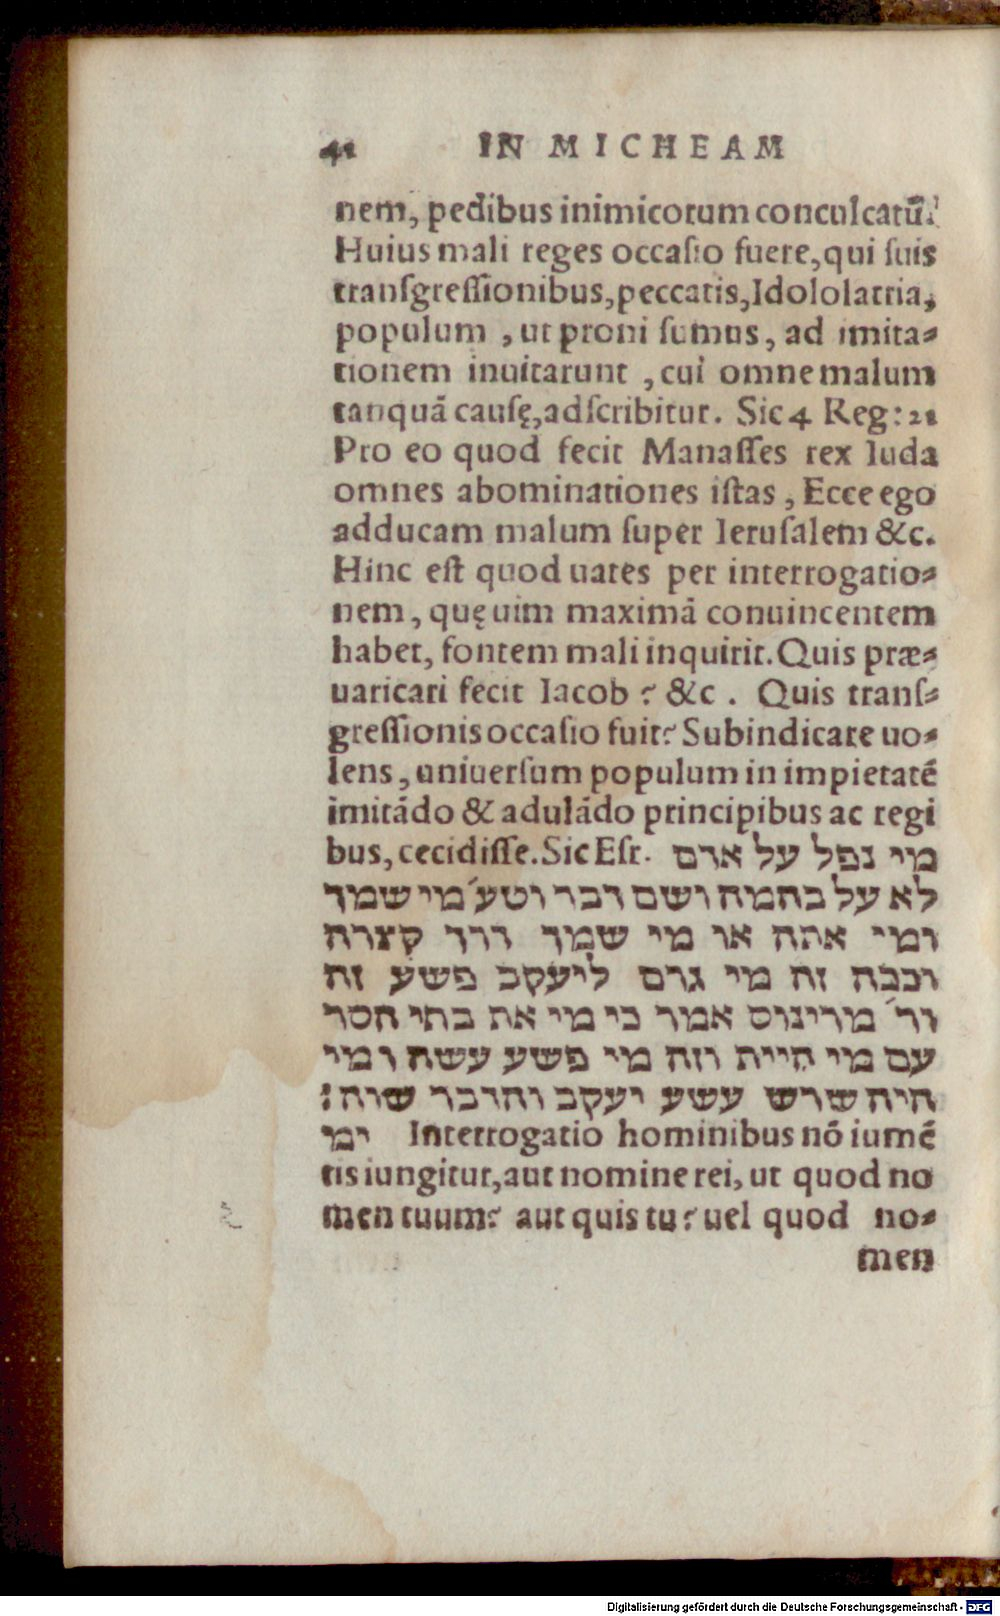 42 IN MICHEAM
nem, pedibus inimicorum conculcatū.
Huius mali reges occasio fuere, qui suis
transgressionibus, peccatis, Idololatria,
populum , ut proni sumus, ad imita-
tionem inuitarunt , cui omne malum
tanquā causę, adscribitur. Sic 4 Reg: 21
Pro eo quod fecit Manasses rex Iuda
omnes abominationes istas , Ecce ego
adducam malum super Ierusalem &c.
Hinc est quod uates per interrogatio-
nem , quę uim maximā conuincentem
habet, fontem mali inquirit. Quis præ-
uaricari fecit Iacob ? &c . Quis trans-
gressionis occasio fuit? Subindicare uo-
lens , uniuersum populum in impietatē
imitādo & adulādo principibus ac regi
bus, cecidisse. Sic Esr. מי נפל על אדם
לא על בהמה ושם דבר וטע׳ מי שמך
ומי אתה או מי שמך דרך קצרה
וככה זה מי גרם ליעקב פשע זה
ור׳ מרינוס אמר כי מי את בתי חסר
עם מי היית וזה מי פשע עשה ומי
היה שרש עשע יעקב והדבר שוה:
ימי Interrogatio hominibus nō iumē
tis iungitur, aut nomine rei, ut quod no
men tuum? aut quis tu? uel quod no-
men
Digitalisierung gefördert durch die Deutsche Forschungsgemeinschaft - DFG